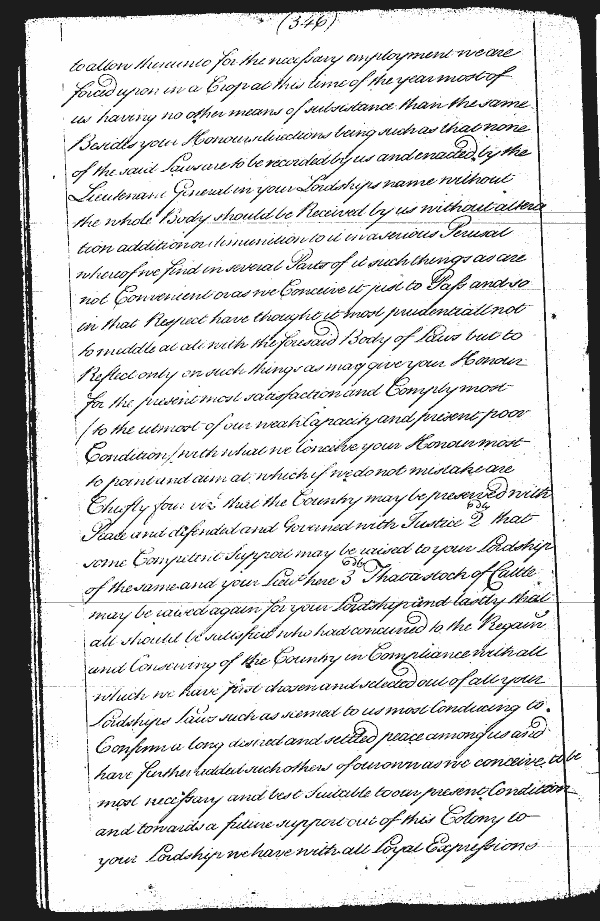 (346)
to allow thereunto for the necessary employment we are
forced upon in a Crop at this time of the year most of
us having no other means of subsistance than the same
Besides your Honours directions being such as that none
of the said Laws are to be recorded by us and enacted by the
Lieutenant General in your Lordships name without
the whole Body should be Received by us without altera
tion addition or diminution to it in a serious Perusal
whereof we find in several Parts of it such things as are
not Convenient or as we Conceive it just to Pass and so
in that Respect have thought it most prudentiall not
to meddle at all with the foresaid Body of Laws but to
Reflect only on such things as may give your Honour
for the present most satisfaction and Comply most
(to the utmost of our weak Capacity and present poor
Condition) with what we conceive your Honour most
to point and aim at, which if we do not mistake are
Chiefly four viz.t that the Country may be preserved with
Peace and defended and Governed with Justice 2 that
some Competent Support may be raised to your Lordship
of the same and your Lieu.t here 3 That a stock of Cattle
may be raised again for your Lordship and lastly that
all should be satisfied who had concurred to the Regain
and Conserving of the Country in Compliance with all
which we have first chosen and selected out of all your
Lordships Laws such as seemed to us most Conducing to
Confirm a long desired and settled peace among us and
have further added such others of our own as we conceive to be
most necessary and best Suitable to our present Condition
and towards a future support out of this Colony to
your Lordship we have with all Loyal Expressions